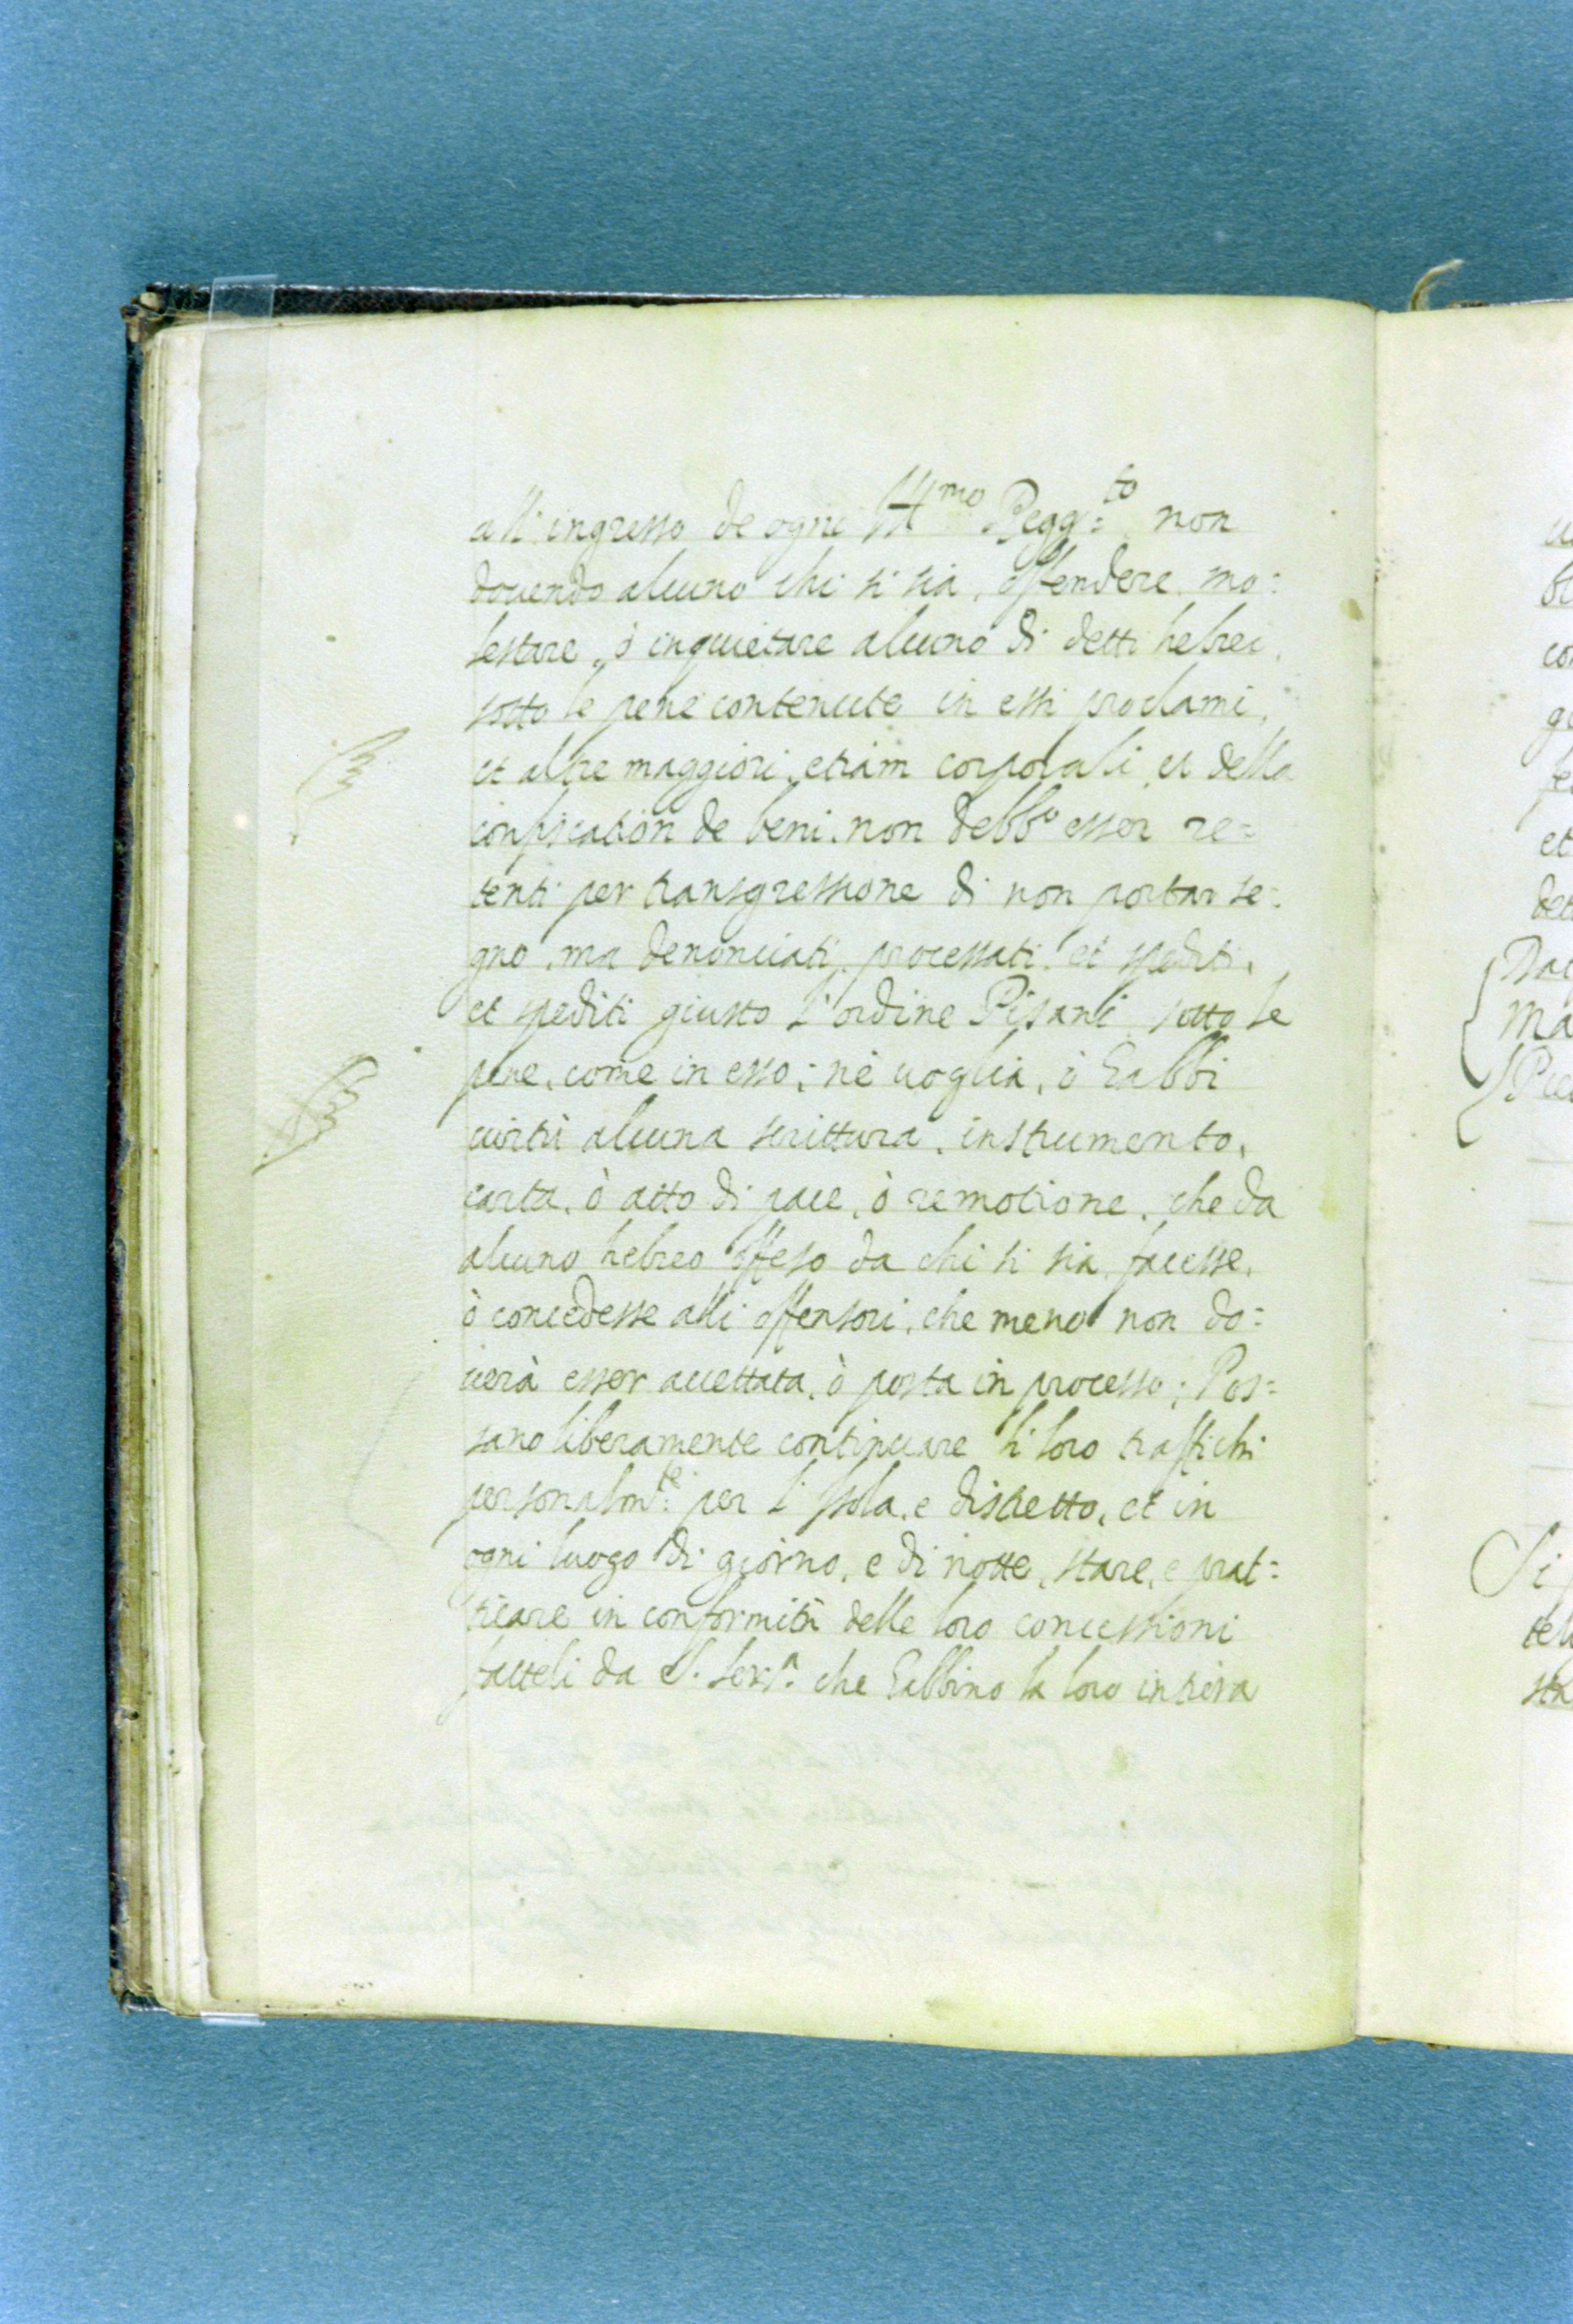 all'ingresso de ogni Ill.mo Regg:to non
douendo alcuno chi si sia, offendere, mo:
lestare, ò inquietare alcuno di detti hebrei,
sotto le pene contenute in essi proclami,
et altre maggiori, etiam corporali, et della
confiscation de beni. non debb.o esser re=
tenti per transgressione di non portar se:
gno, ma denonciati, processati, et spediti,
et spediti giusto l'ordine Pisani sotto le
pene, come in esso; nè uoglia, ò habbi
uirtù alcuna scrittura, instrumento,
carta, ò atto di pace, ò remotione, che da
alcuno hebreo offeso da chi si sia, facesse,
ò concedesse alli offensori, che meno non do=
uerà esser accettata, ò posta in processo; Pos=
sano liberamente continuare li loro traffichi
personalm:te per l'Isola, e distretto, et in
ogni luogo di giorno, e di notte, stare, e prat=
ticare in conformità delle loro concessioni
fatteli da S. Ser.tà che habbino la loro intiera